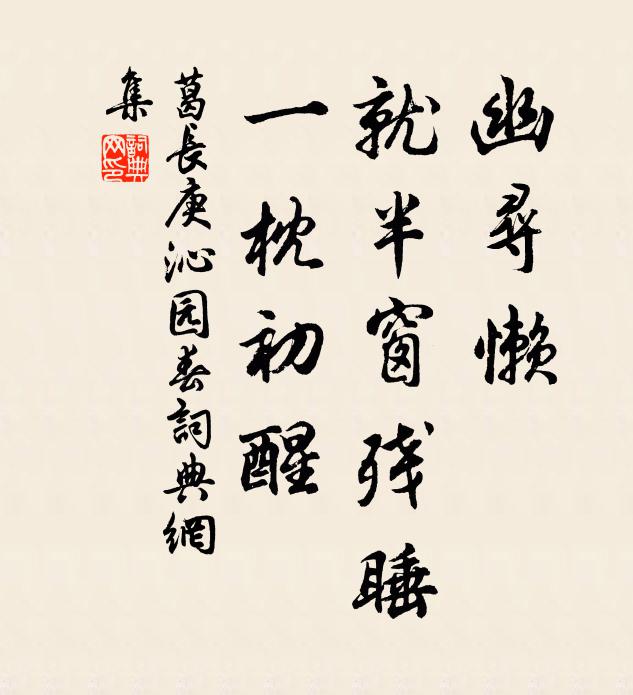 幽尋懶
就半窗残睡
一枕初醒
葛長庚沁园春詞典網
集
詞典
网印